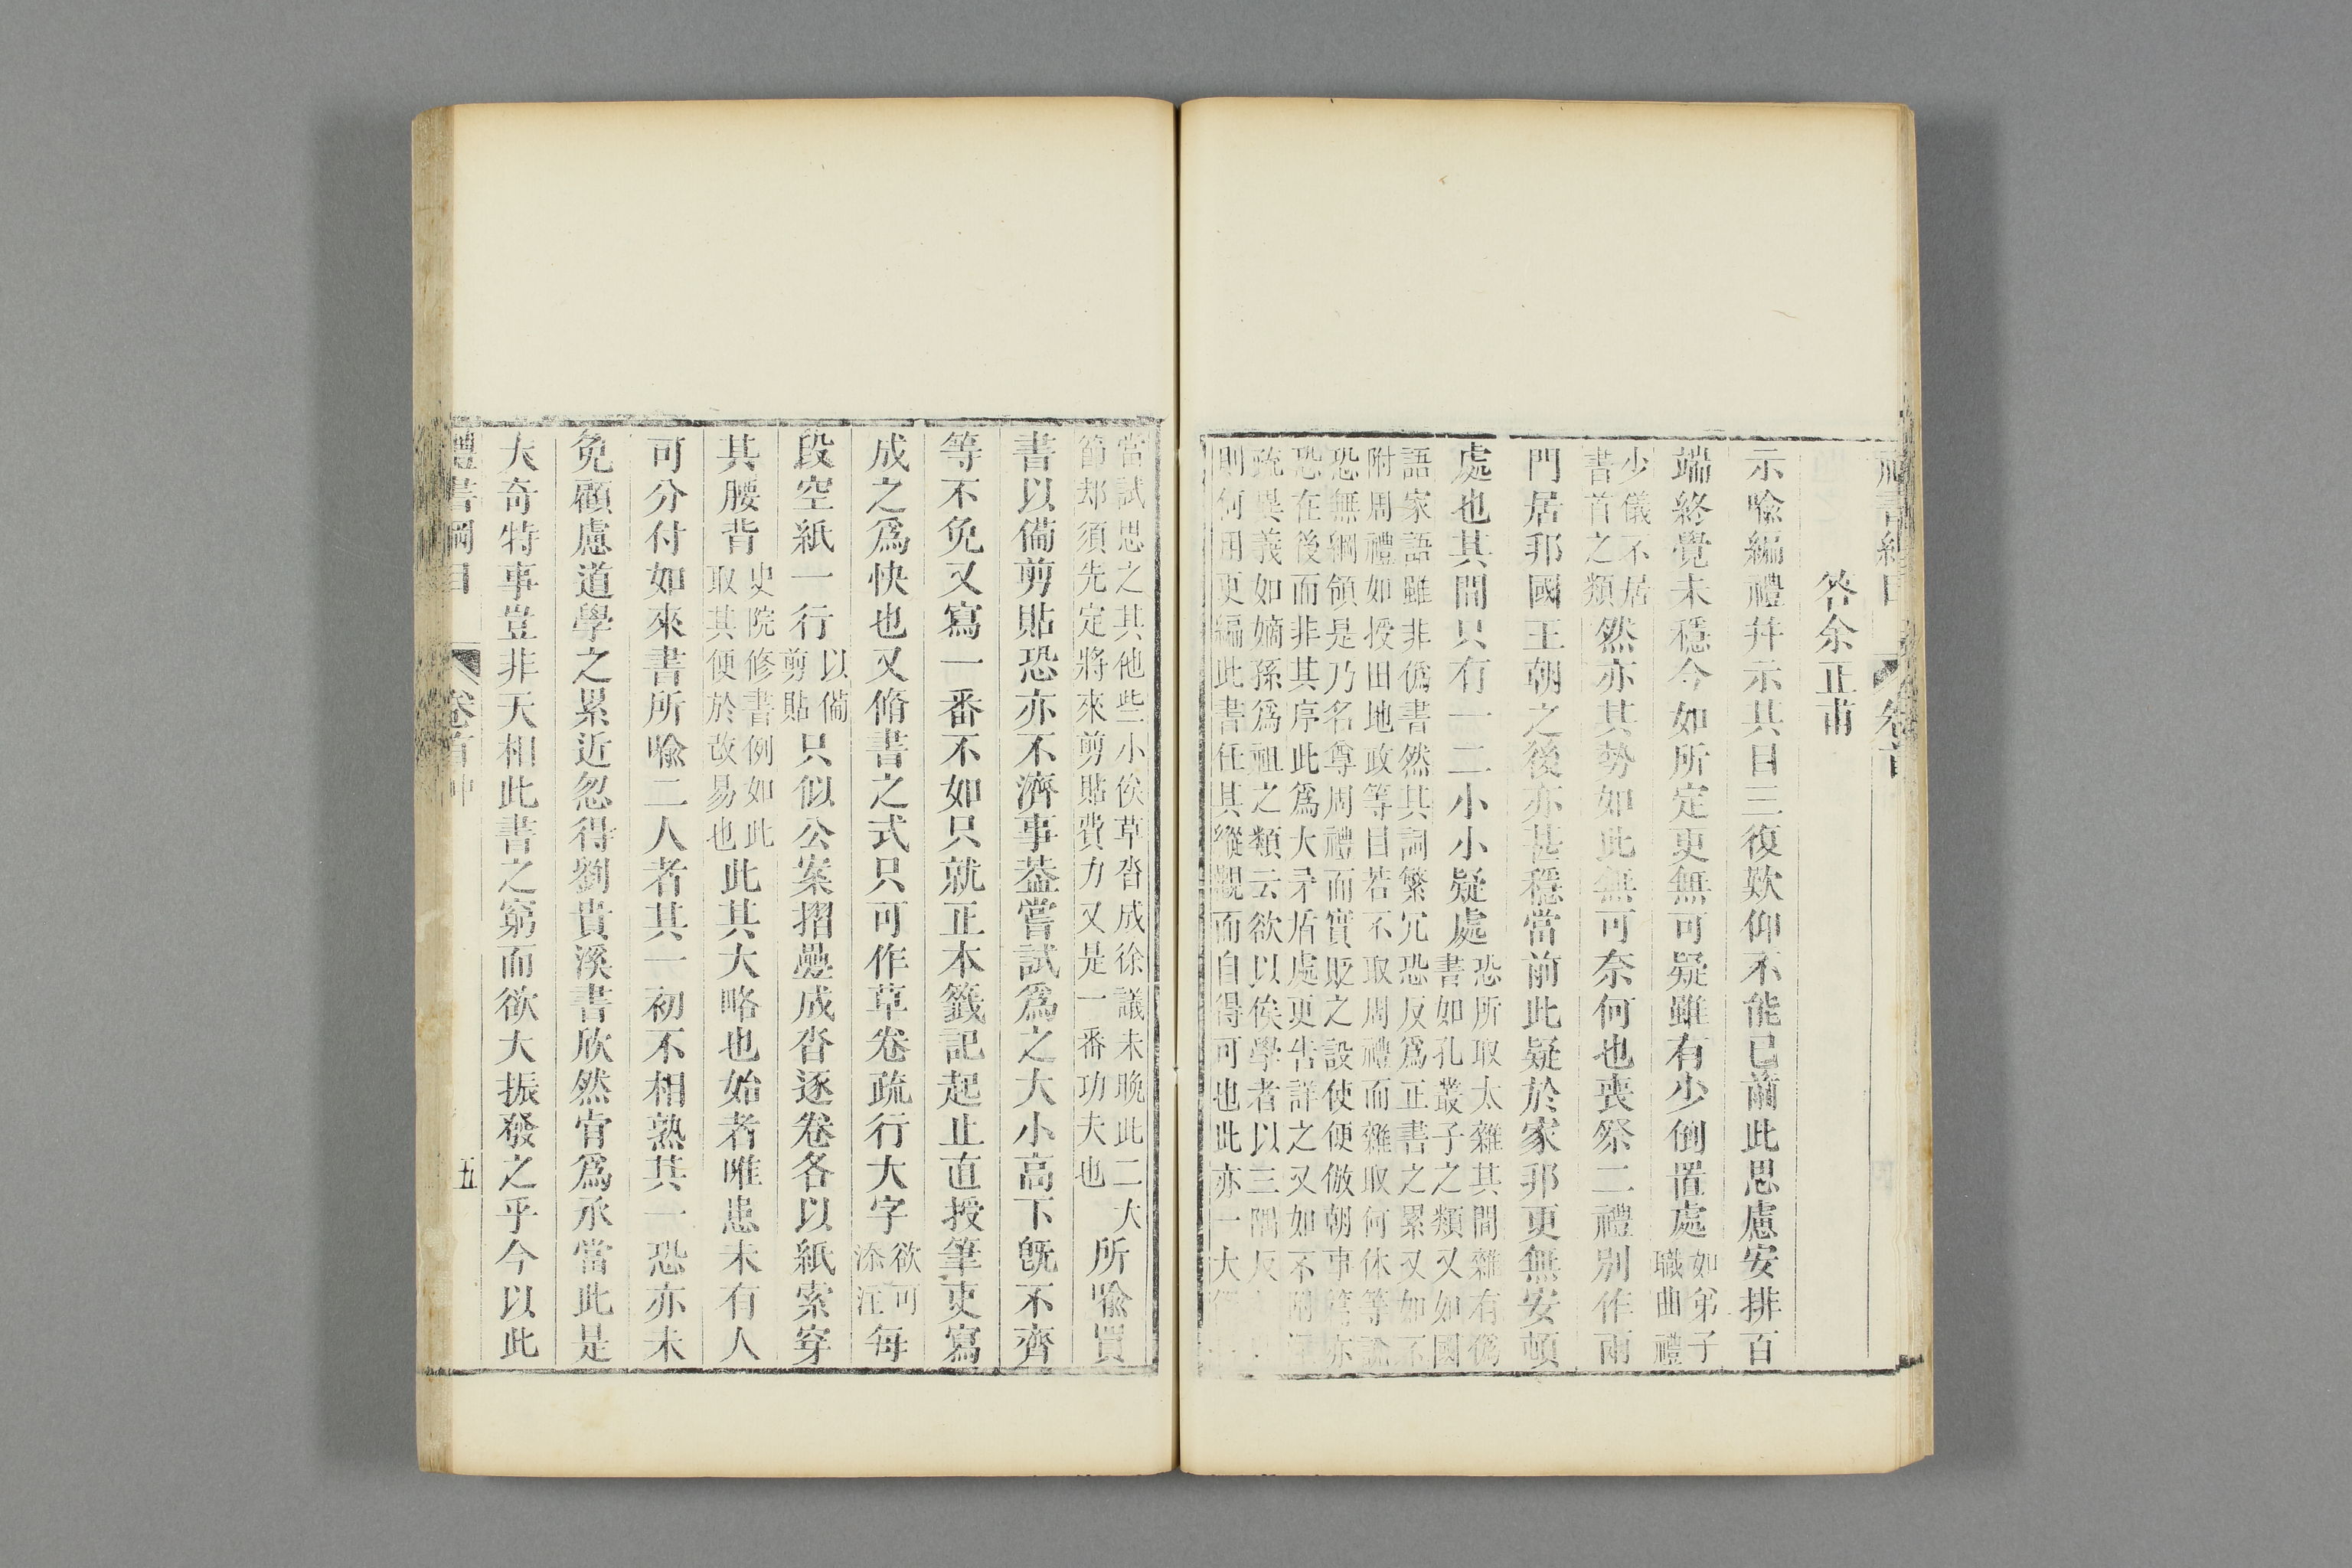 答余正甫
示喻編禮并示其目三復歎仰不能已前此思慮安排百
端終覺未穩今如所定更無可疑雖有少倒置處如弟子職曲禮
少儀不居書首之類然亦其勢如此無可奈何也喪祭二禮別作兩
門居邦國王朝之後亦甚穩當前此疑於家邦更無安頓
處也其間只有一二小小疑處恐所取太雜其間雜有僞書如孔叢子之類又如國
語家語雖非僞書然其詞繁冗恐反爲正書之累又如不
附周禮如授田地政等目若不取周禮而雜取何休等說
恐無綱領是乃名尊周禮而實貶之設使便倣朝事篇亦
恐在後而非其序此爲大矛盾處更告詳之又如不附
疏異義如嫡孫爲祖之類云欲以俟學者以三隅反
則何用更編此書任其縱觀而自得可也此亦一大
當試思之其他些小俟草沓成徐議未晚此二大
節却須先定將來剪貼費力又是一番功夫也所喻買
書以備剪貼恐亦不濟事蓋嘗試爲之大小高下既不齊
等不免又寫一番不如只就正本籤記起止直授筆吏寫
成之爲快也又脩書之式只可作草卷疏行大字欲可添注每
段空紙一行以備剪貼只似公案摺疊成沓逐卷各以紙索穿
其腰背史院修書例如此取其便於改易也此其大略也始者唯患未有人
可分付如來書所喻二人者其一初不相熟其一恐亦未
免顧慮道學之累近忽得劉貴溪書欣然肯爲承當此是
大奇特事豈非天相此書之窮而欲大振發之乎今以此
禮書綱目 卷首中 五